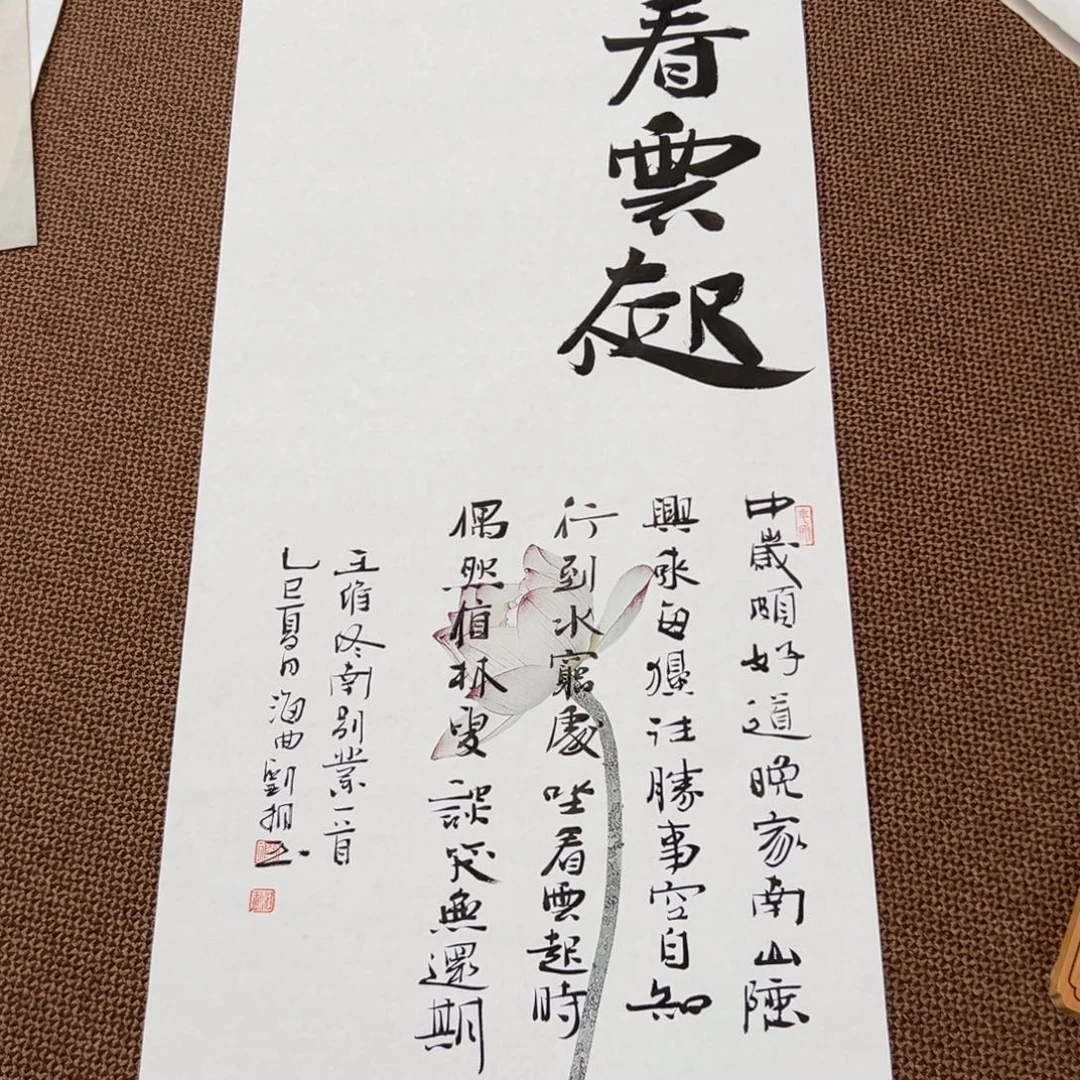 看雲起
中歲頗好道晚家南山陲
興來每獨往勝事空自知
行到水窮處坐看雲起時
偶然值林叟談笑無還期
王維終南別業一首
乙巳夏日海曲劉